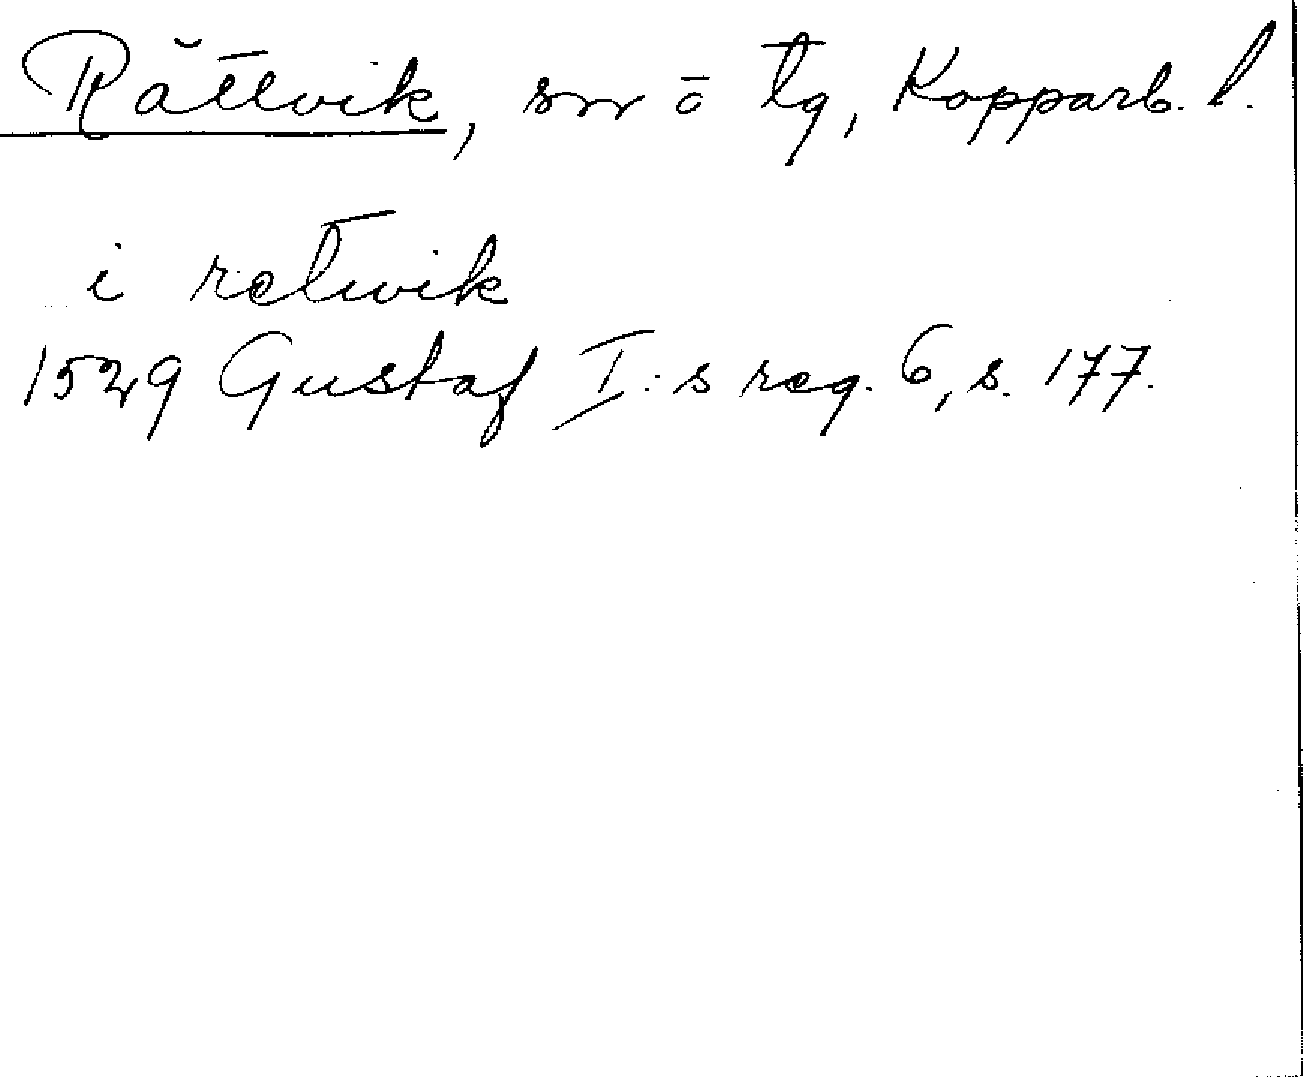 Rättvik, sn o tg, Kopparb. l.
i retwik
1529 Gustaf I:s reg. 6, s. 177.